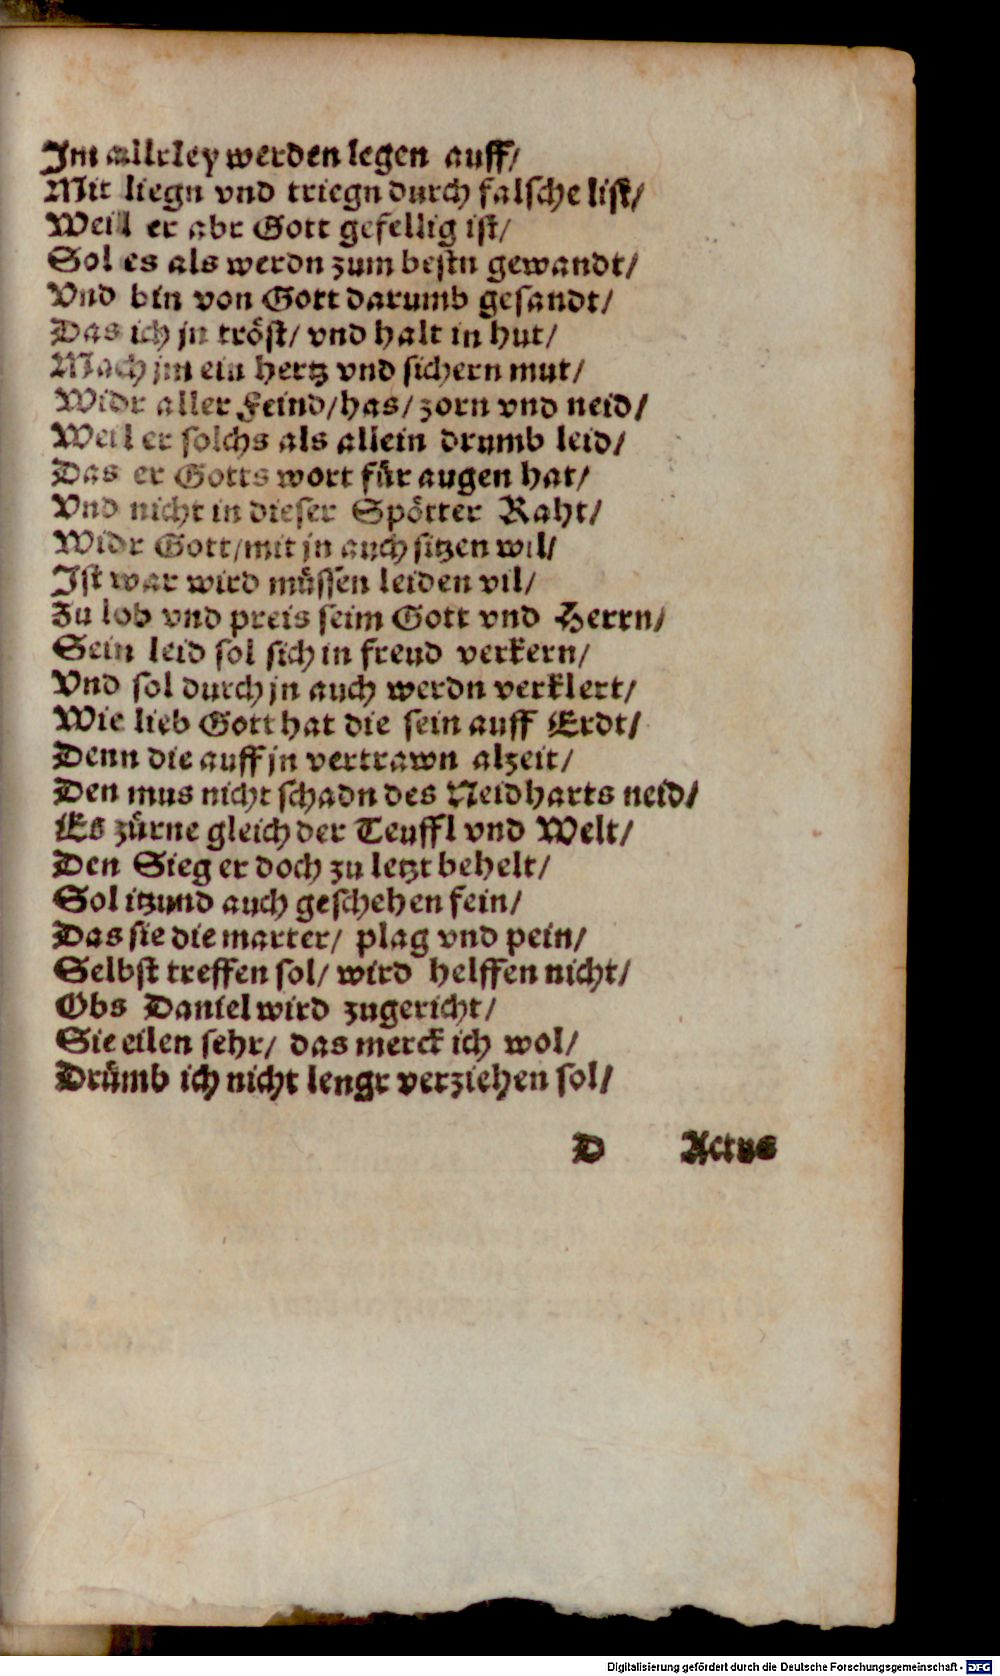 Im allrley werden legen auff/
Mit liegn vnd triegn durch falsche list/
Weil er abr Gott gefellig ist/
Sol es als werdn zum bestn gewandt/
Vnd bin von Gott darumb gesandt/
Das ich jn tröst/ vnd halt in hut/
Mach jm ein hertz vnd sichern mut/
Widr aller Feind/has/ zorn vnd neid/
Weil er solchs als allein drumb leid/
Das er Gotts wort für augen hat/
Vnd nicht in dieser Spötter Raht/
Widr Gott/mit jn auch sitzen wil/
Ist war wird müssen leiden vil/
Zu lob vnd preis seim Gott vnd Herrn/
Sein leid sol sich in freud verkern/
Vnd sol durch jn auch werdn verklert/
Wie lieb Gott hat die sein auff Erdt/
Denn die auff jn vertrawn alzeit/
Den mus nicht schadn des Neidharts neid/
Es zürne gleich der Teuffl vnd Welt/
Den Sieg er doch zu letzt behelt/
Sol itzund auch geschehen fein/
Das sie die marter/ plag vnd pein/
Selbst treffen sol/ wird helffen nicht/
Obs Daniel wird zugericht/
Sie eilen sehr/ das merck ich wol/
Drümb ich nicht lengr verziehen sol/
D Actus
Digitalisierung gefördert durch die Deutsche Forschungsgemeinschaft - DFG